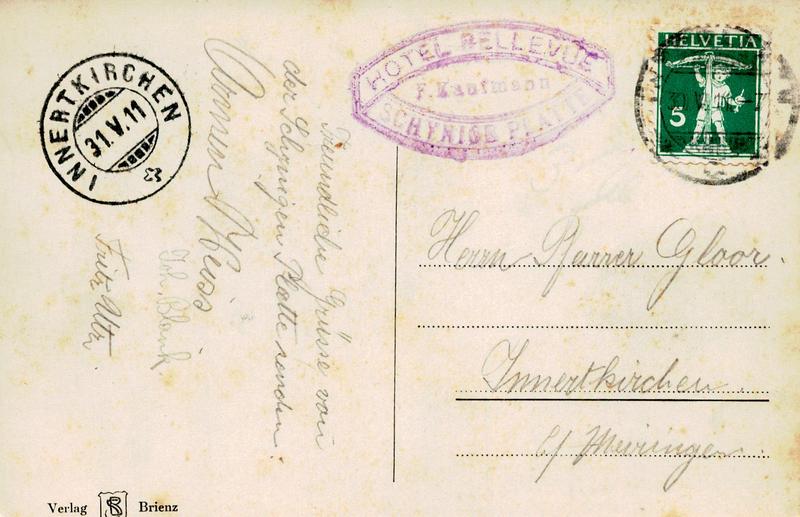 INNERTKIRCHEN
31.V.11
HOTEL BELLEVUE
F. Kaufmann
SCHYNIGE PLATTE
HELVETIA
5
Freundliche Grüsse von
der Schynigen Platte senden:
Fritz
Joh. Blank
Herrn Pfarrer Gloor.
Innertkirchen.
b/ Meiringen.
Verlag
Brienz